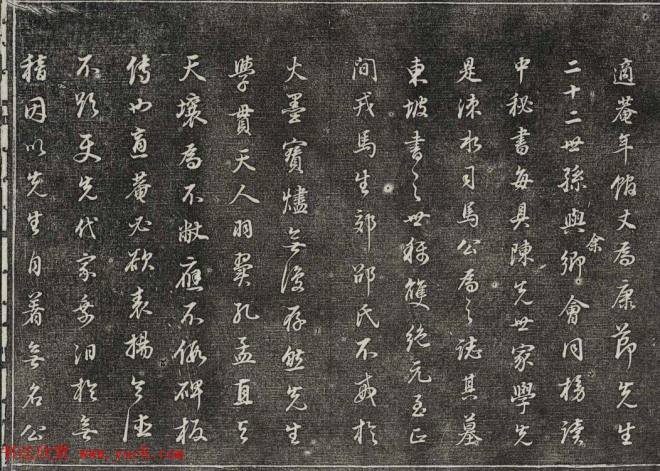 適菴年館丈爲康節先生
二十二世孫與余鄉會同榜讀
中秘書每具陳先世家學先
是涑水司馬公爲之誌其墓
東坡書之世稱雙絕元至正
間戎馬生郊邵氏不戒於
火墨寶燼無復存然先生
學貫天人羽翼孔孟直與
天壤爲不敝應不假碑板
傳也適菴必欲表揚令德
不欲先代家乘泪於無
稽因以先生自著無名公
www.yac8.com